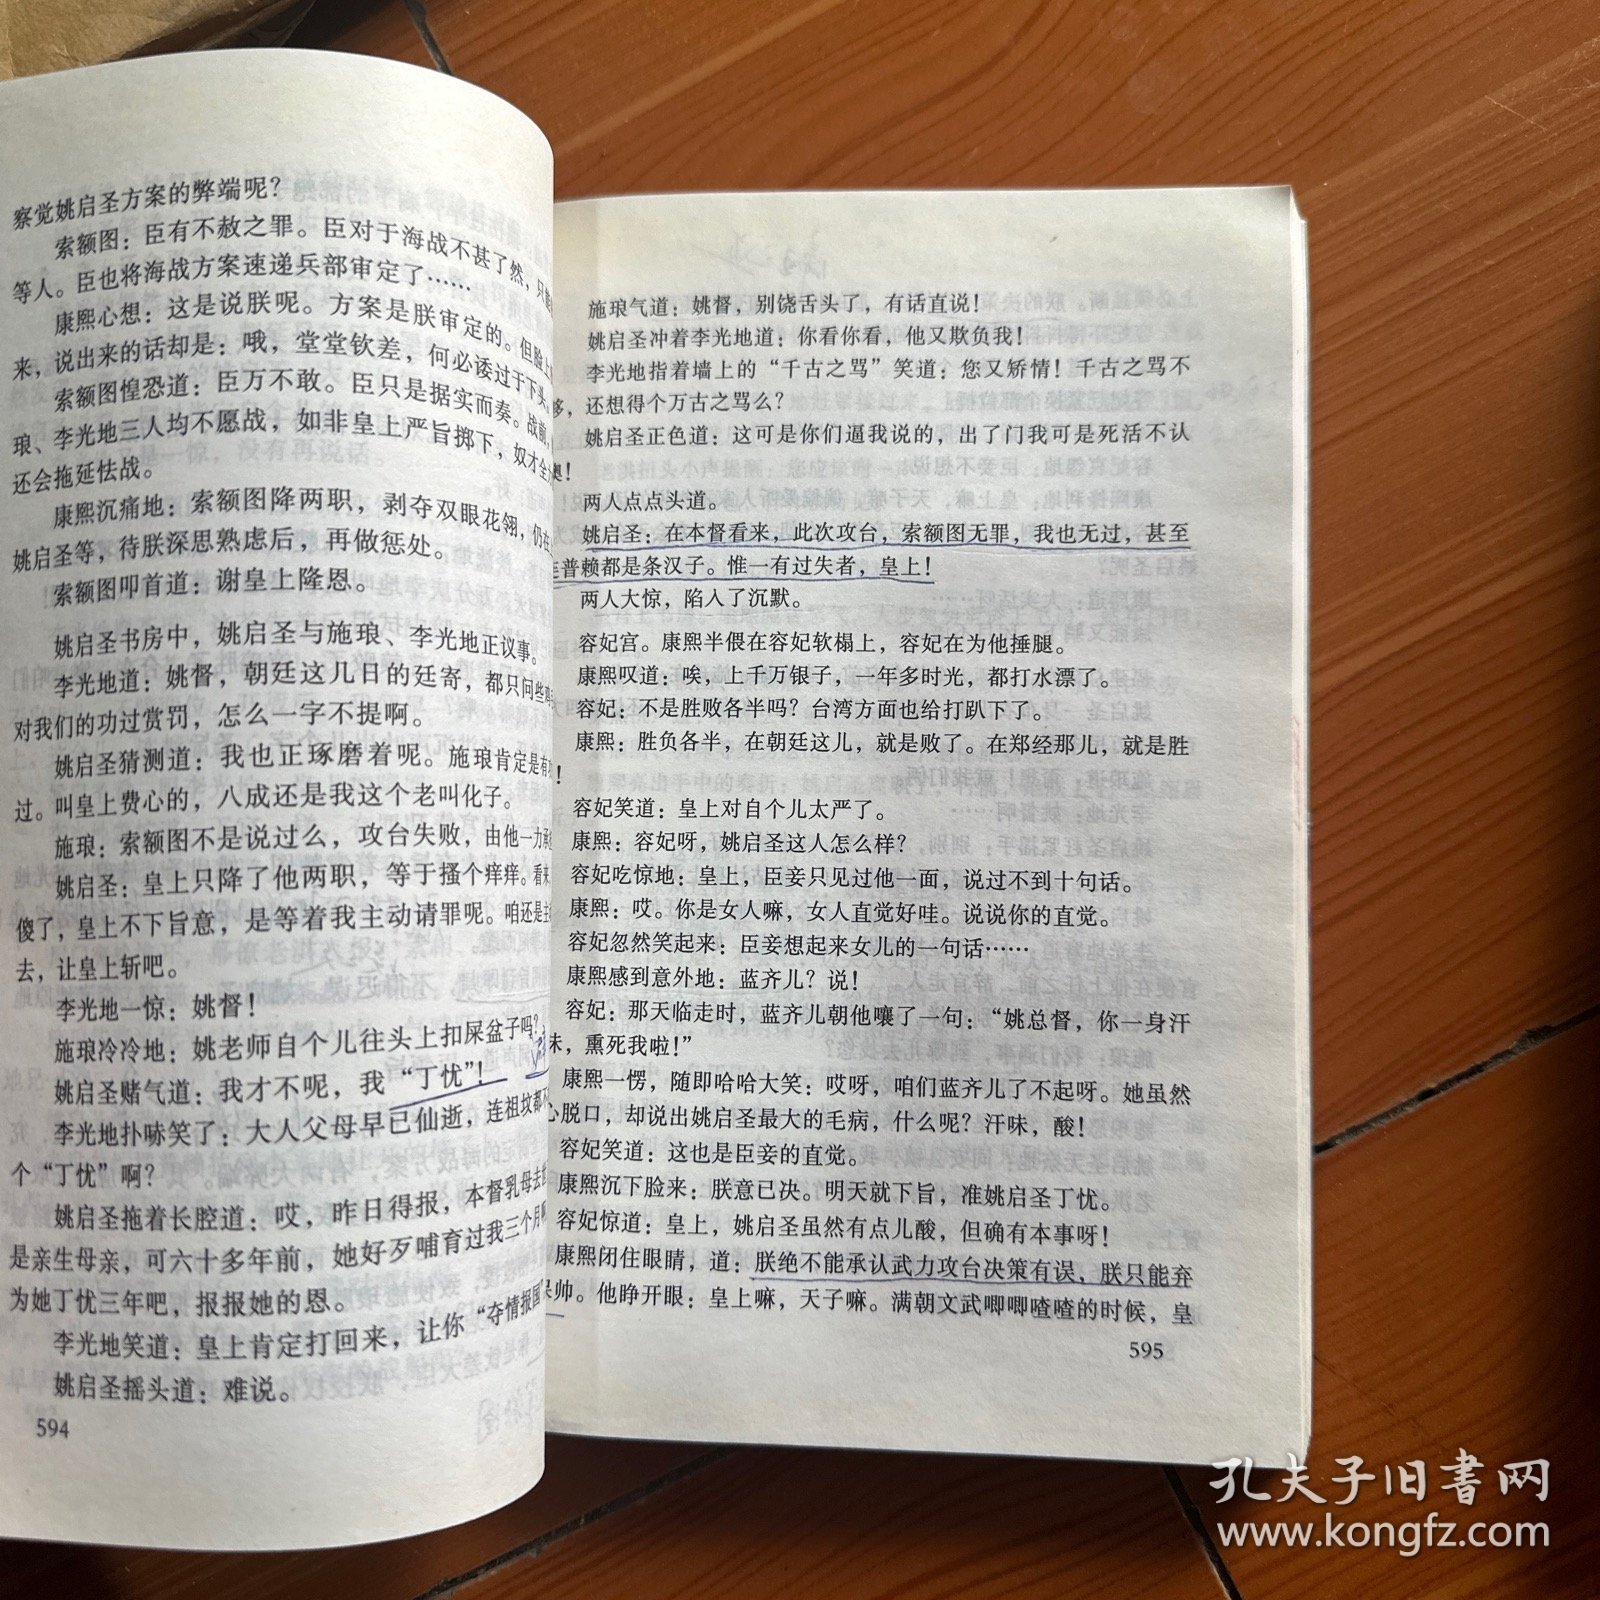 察觉姚启圣方案的弊端呢?
索额图:臣有不赦之罪。臣对于海战不甚了然,只
等人。臣也将海战方案速递兵部审定了……
康熙心想:这是说朕呢。方案是朕审定的。但脸上
来,说出来的话却是:哦,堂堂钦差,何必诿过于下头,
索额图惶恐道:臣万不敢。臣只是据实而奏。战前,
琅、李光地三人均不愿战,如非皇上严旨掷下,奴才全
还会拖延怯战。
康熙沉痛地:索额图降两职,剥夺双眼花翎,仍在
姚启圣等,待朕深思熟虑后,再做惩处。
索额图叩首道:谢皇上隆恩。
姚启圣书房中,姚启圣与施琅、李光地正议事。
李光地道:姚督,朝廷这几日的廷寄,都只问些
对我们的功过赏罚,怎么一字不提啊。
姚启圣猜测道:我也正琢磨着呢。施琅肯定是有
过。叫皇上费心的,八成还是我这个老叫化子。
施琅:索额图不是说过么,攻台失败,由他一力承
姚启圣:皇上只降了他两职,等于搔个痒痒。看来
傻了,皇上不下旨意,是等着我主动请罪呢。咱还是主
去,让皇上斩吧。
李光地一惊:姚督!
施琅冷冷地:姚老师自个儿往头上扣屎盆子吗?
姚启圣赌气道:我才不呢,我“丁忧”!
李光地扑哧笑了:大人父母早已仙逝,连祖坟都
个“丁忧”啊?
姚启圣拖着长腔道:哎,昨日得报,本督乳母去世
是亲生母亲,可六十多年前,她好歹哺育过我三个月
为她丁忧三年吧,报报她的恩。
李光地笑道:皇上肯定打回来,让你“夺情报国
姚启圣摇头道:难说。
594
施琅气道:姚督,别饶舌头了,有话直说!
姚启圣冲着李光地道:你看你看,他又欺负我!
李光地指着墙上的“千古之骂”笑道:您又矫情!千古之骂不
够,还想得个万古之骂么?
姚启圣正色道:这可是你们逼我说的,出了门我可是死活不认
奥!
两人点点头道。
姚启圣:在本督看来,此次攻台,索额图无罪,我也无过,甚至
连普赖都是条汉子。惟一有过失者,皇上!
两人大惊,陷入了沉默。
容妃宫。康熙半偎在容妃软榻上,容妃在为他捶腿。
康熙叹道:唉,上千万银子,一年多时光,都打水漂了。
容妃:不是胜败各半吗?台湾方面也给打趴下了。
康熙:胜负各半,在朝廷这儿,就是败了。在郑经那儿,就是胜
!
容妃笑道:皇上对自个儿太严了。
康熙:容妃呀,姚启圣这人怎么样?
容妃吃惊地:皇上,臣妾只见过他一面,说过不到十句话。
康熙:哎。你是女人嘛,女人直觉好哇。说说你的直觉。
容妃忽然笑起来:臣妾想起来女儿的一句话……
康熙感到意外地:蓝齐儿?说!
容妃:那天临走时,蓝齐儿朝他嚷了一句:“姚总督,你一身汗
味,熏死我啦!”
康熙一愣,随即哈哈大笑:哎呀,咱们蓝齐儿了不起呀。她虽然
心脱口,却说出姚启圣最大的毛病,什么呢?汗味,酸!
容妃笑道:这也是臣妾的直觉。
康熙沉下脸来:朕意已决。明天就下旨,准姚启圣丁忧。
容妃惊道:皇上,姚启圣虽然有点儿酸,但确有本事呀!
康熙闭住眼睛,道:朕绝不能承认武力攻台决策有误,朕只能弃
帅。他睁开眼:皇上嘛,天子嘛。满朝文武唧唧喳喳的时候,皇
595
孔夫子旧书网
www.kongfz.com